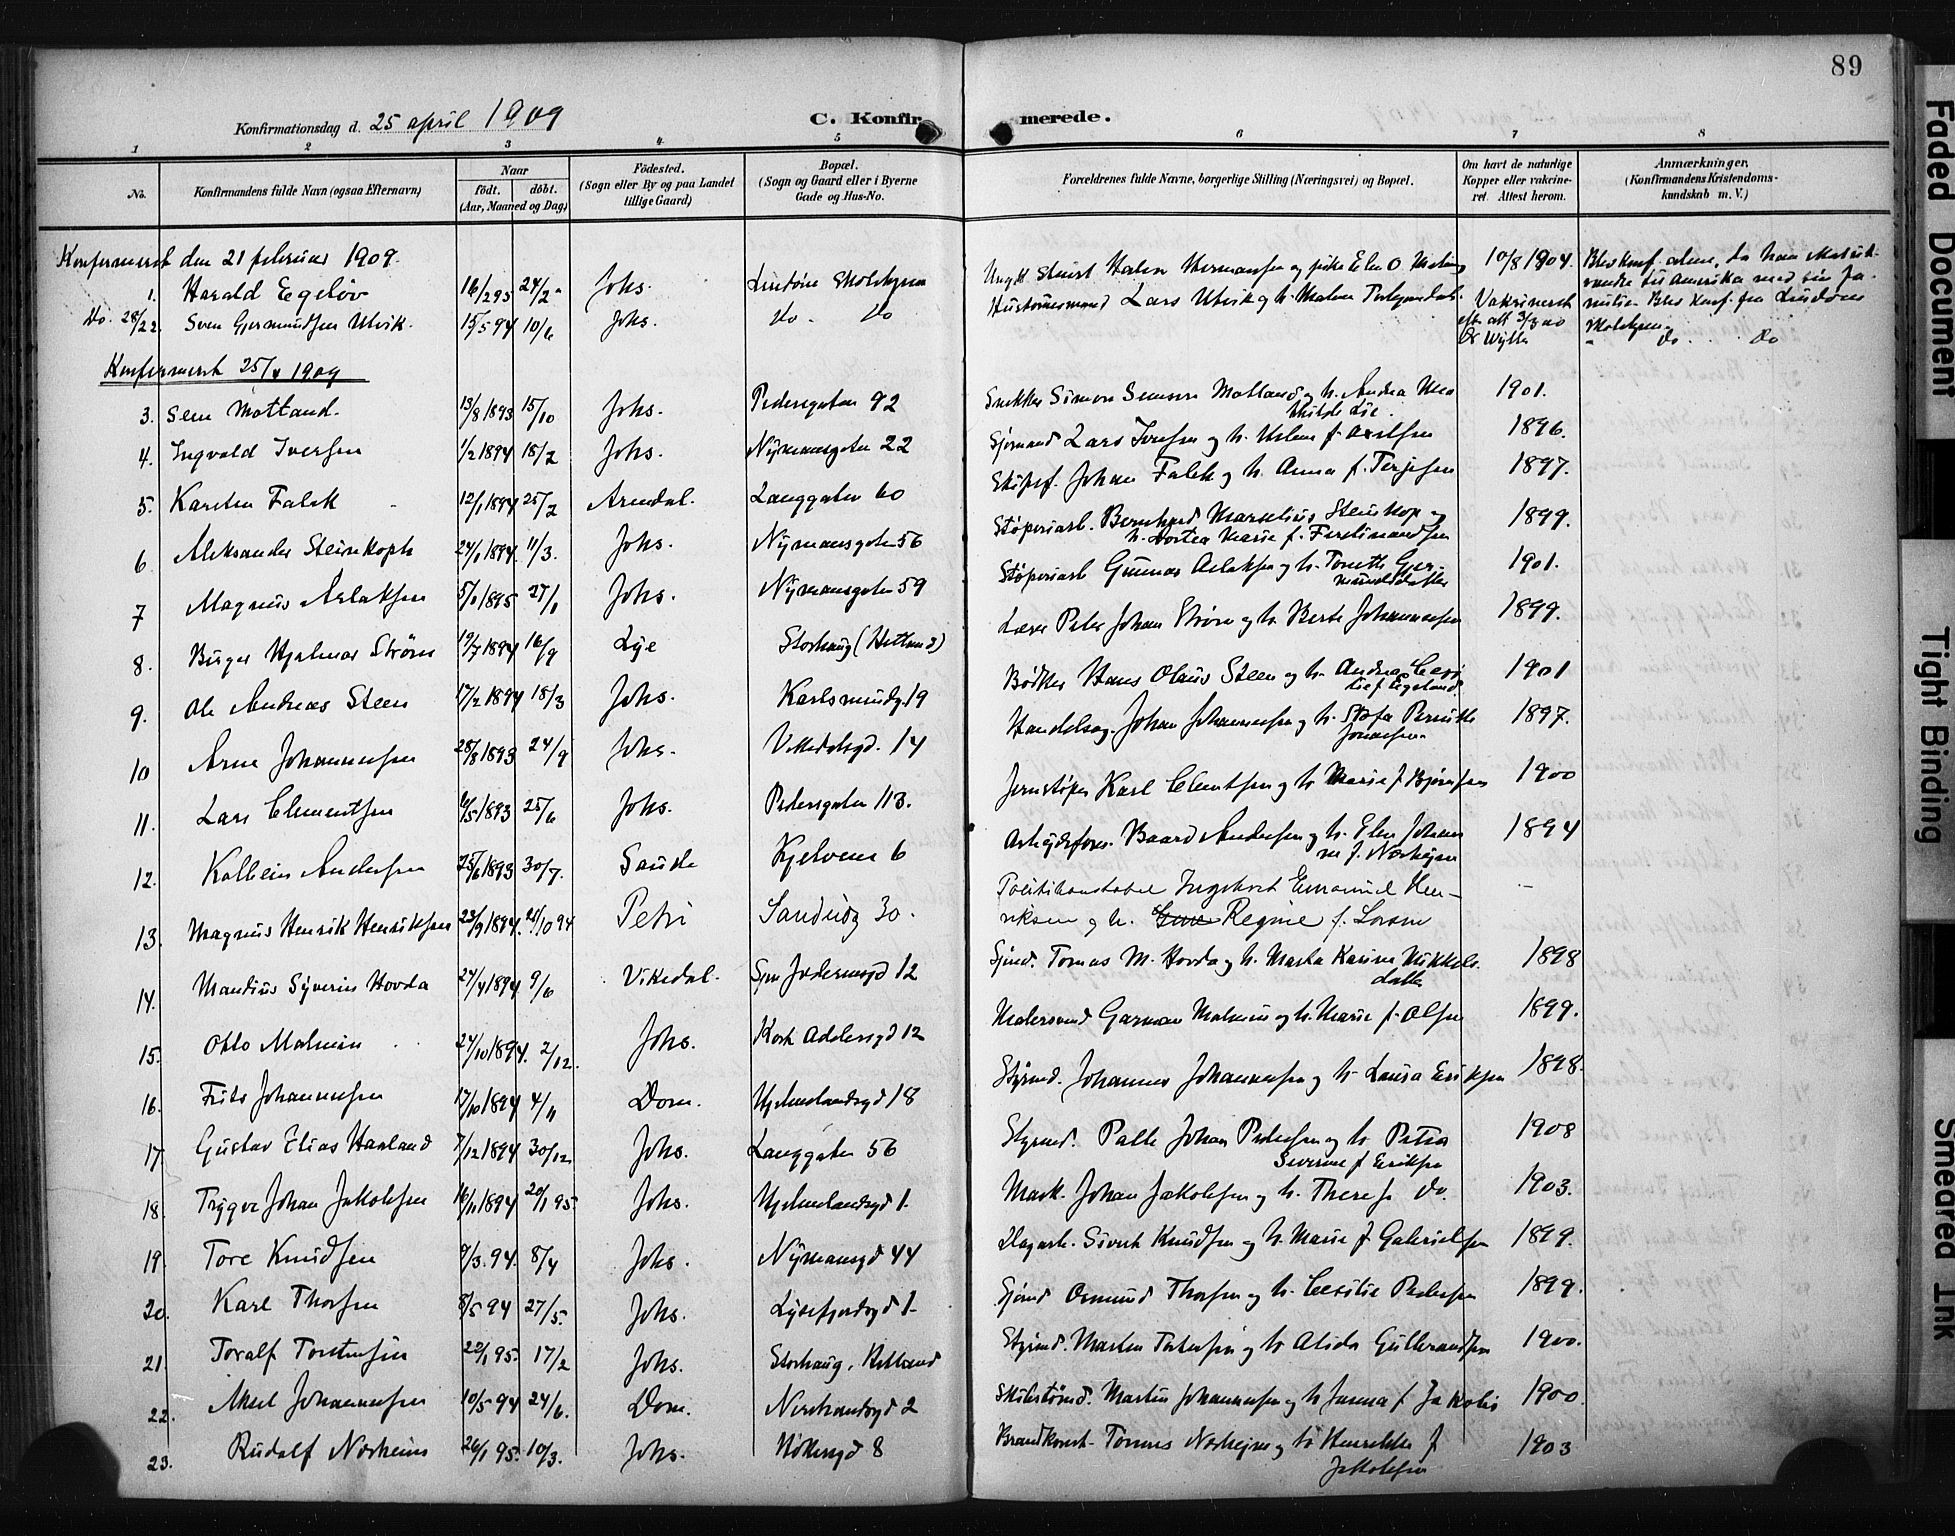 89
Konfirmationsdag d. 25 april 1909
C. Konfirmerede.
1 2 3 4 5 6 7 8
No.
Konfirmandens fulde Navn (ogsaa Efternavn)
Naar
født. døbt.
(Aar, Maaned og Dag)
Fødested.
(Sogn eller By og paa Landet
tillige Gaard)
Bopæl.
(Sogn og Gaard eller i Byerne
Gade og Hus-No.
Forældrenes fulde Navne, borgerlige Stilling (Næringsvei) og Bopæl.
Om havt de naturlige
Kopper eller vakcine-
ret. Attest herom.
Anmærkninger.
(Konfirmandens Kristendoms-
kundskab m. V.)
Konfirmeret den 21 februar 1909.
1. Harald Egeløv 16/2 95 24/2 Johs. Lindøen Skolehjem 10/8 1904.
Sven Gjermundsen Utvik. 15/5 94 10/6 Johs. do do Lars Utvik Vakcineret
do do
Konfirmeret 25/4 1909
3. Sem Motland. 13/8 1893 15/10 Johs. Pedersgaten 92 Snekker Simon Motland og h. Andrea 1901.
4. Ingvald Iversen 1/2 1894 18/2 Johs. Nymansgaten 22 Sjømand Lars Iversen og h. f. Axelsen 1896.
5. Karsten Falck 12/1 1894 25/2 Arendal. Langgaten 60 Johan Falck og h. Anna f. Terjesen 1897.
6 Aleksander Steinskoph 24/1 1894 11/3. Johs. Nymansgaten 56 Støperiarb. Bernhard Marselius Steinskop og
h. Dortea Marie f. Ferdinandsen 1899.
7 Magnus Aslaksen 5/1 1895 27/1 Johs. Nymansgaten 59 Støperiarb Gunnar Aslaksen og h. Tonette Gjer-
mundsdatter 1901.
8. Birger Hjalmar Strøm 19/7 1894 16/9 Lye Storhaug (Hetland) Peter Johan Strøm og h. Berte Johannessen 1899.
9. Ole Andreas Steen 17/2 1894 18/3 Johs. Karlsmindeg. 19 Bødker Hans Olaus Steen og h. Andrea 1901
10 Arne Johannessen 28/8 1893 24/9 Johs. Vikedalsgd. 14 Johan Johannessen og h. 1897.
11. Lars Clementsen 6/5 1893 25/6 Johs. Pedersgaten 113. Jernstøper Karl Clementsen og h. Marie f. Bjørnsen 1900
12. Kolbein Andersen 25/6 1893 30/7. Saude Kjelvene 6 Arbeidsform. Baard Andersen og h. Elen
f. Norheim 1894
13. Magnus Henrik Henriksen 23/9 1894. 21/10 94 Petri Sandvig 30. Politikonstabel Ingebret Emanuel Hen-
riksen og h. Regine f. Larsen
14. Mandius Syverin Hovda 24/4 1894 9/6 Vikedal. Jædernsgd 12 Sjmd. Tomas M. Hovda og h. Marta Karine Mikkels-
datter 1898
15. Otto Malmin 24/10 1894. 2/12. Johs. Kort Adelersgd 12 Malersvend Garman Malmin og h. Marie f. Olsen 1899.
16. Frits Johannessen 17/10 1894 4/11 Dom. Hjelmelandsgd 18 Styrmd. Johannes Johannessen og h. Laura Eriksen 1898.
17. Gustav Elias Haaland 7/12 1894 30/12 Johs. Langgaten 56 Styrmd. Palle Johan Pedersen og h. Petra
Severine f. Eriksen 1908
18. Trygve Johan Jakobsen 16/11 1894 20/1 95 Johs. Hjelmelandsgd 1. Mask. Johan Jakobsen og h. Therese f. do. 1903.
19 Tore Knudsen 9/3. 94. 8/4 Johs. Nymansgd 44 Dagarb. Sivert Knudsen og h. Marie f. Gabrielsen 1899.
20. Karl Thorsen 8/5 94 27/5. Johs. Lysefjordsgd 1. Sjømd Osmund Thorsen og h. Cecilie Pedersen 1899.
21. Toralf Torstensen 22/1 95. 17/2 Johs. Storhaug, Hetland Styrmd. Martin Torstensen og h. Alida Gulbrandsen 1900.
22. Aksel Johannessen 10/5 94 24/6. Dom. Nordrandsgd 2 Martin Johannessen og h Janna f. Jakobs 1900.
23. Rudolf Norheim 26/1 95. 10/3. Johs. gd 8 Brandkonst. Tomas Norheim og h. Henrikke f.
Jakobsen 1903
Faded Document
Tight Binding
Smeared Ink